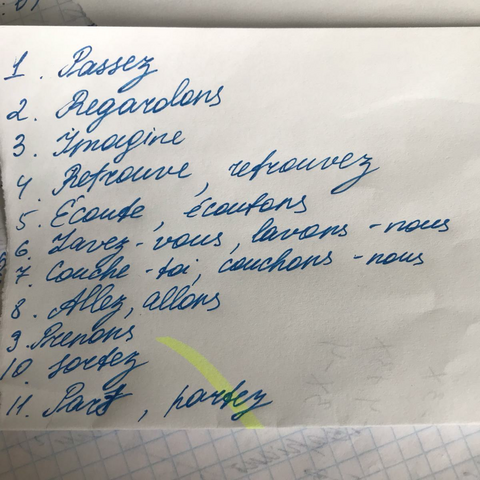 1. Passez
2. Regardons
3. Imagine
4. Retrouve, retrouvez
5. Écoute, écoutons
6. Lavez-vous, lavons-nous
7. Couche-toi, couchons-nous
8. Allez, allons
9. Prenons
10. Sortez
11. Pars, partez